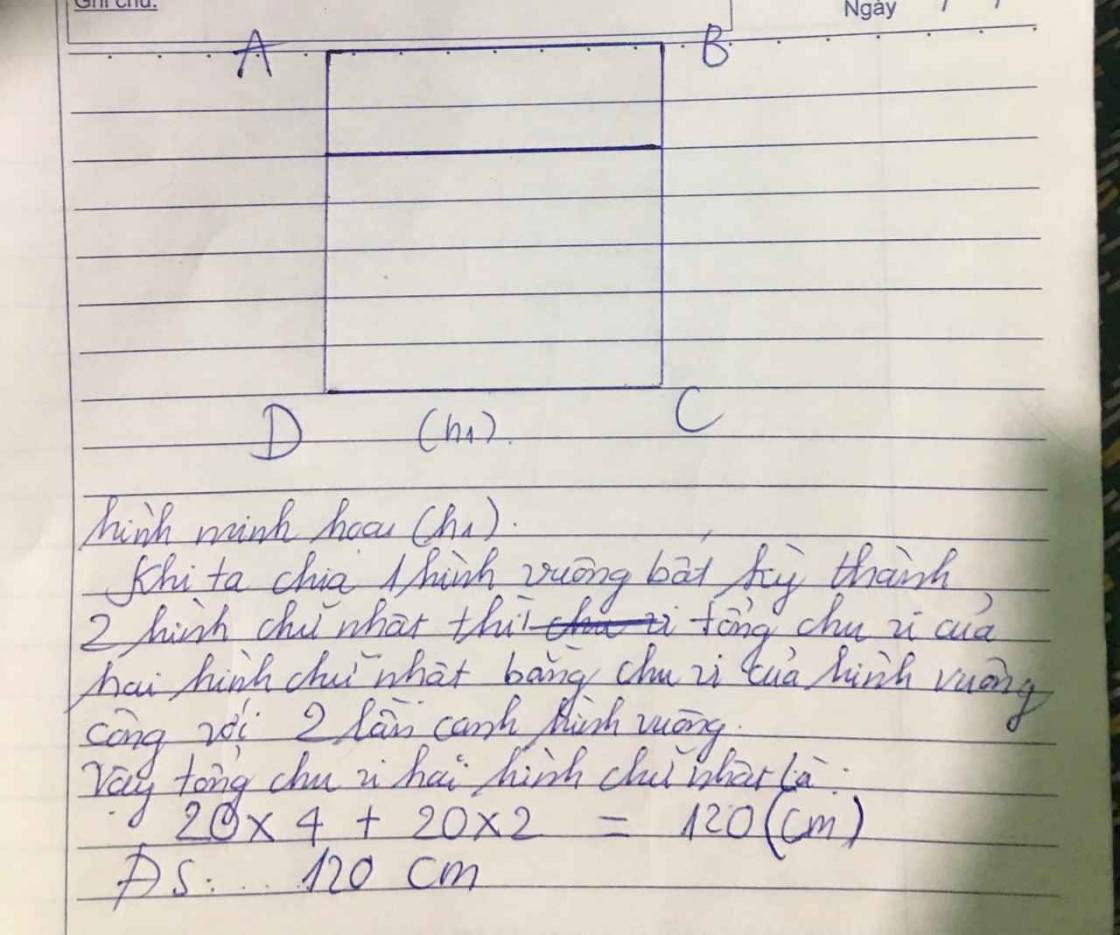 Ghi chú:
Ngày / /
A B
D (h1). C
hình minh hoạ (h1).
Khi ta chia 1 hình vuông bất kỳ thành
2 hình chữ nhật thì chu vi tổng chu vi của
hai hình chữ nhật bằng chu vi của hình vuông
cộng với 2 lần cạnh hình vuông.
Vậy tổng chu vi hai hình chữ nhật là:
20 x 4 + 20 x 2 = 120 (cm)
ĐS: ... 120 cm